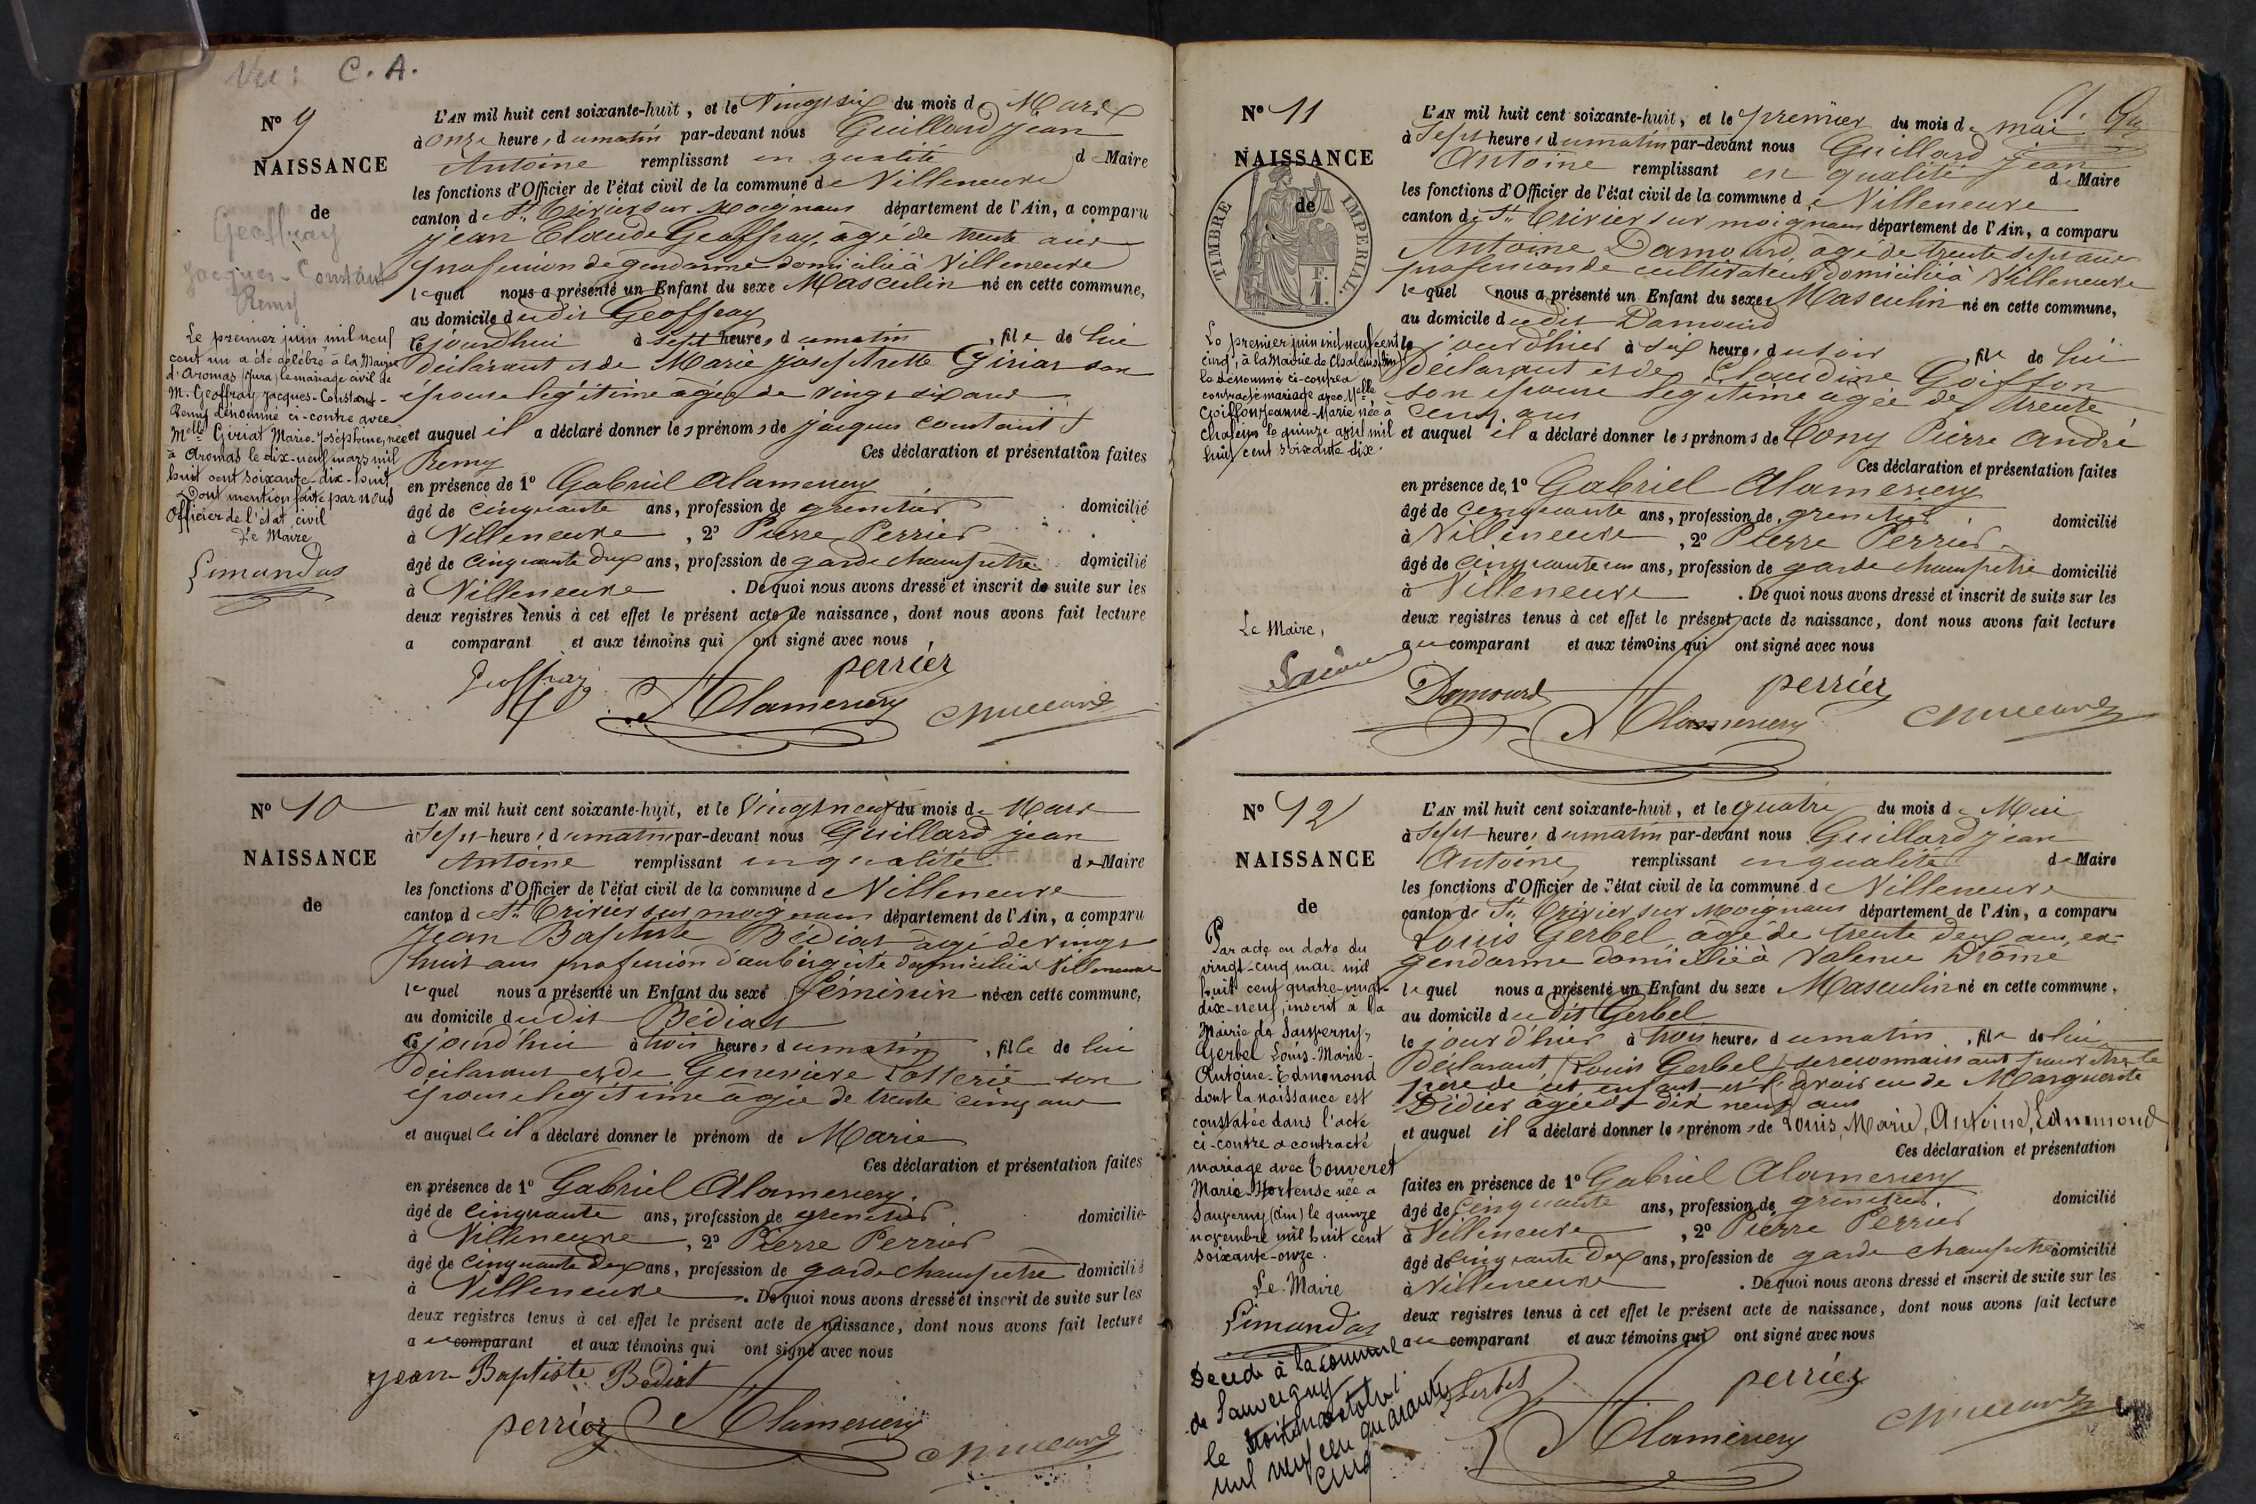 Vu : C. A.
N° 9
NAISSANCE
de
Geoffray
Jacques-Constant
Remy
Le premier juin mil neuf
cent un a été célébré à la Mairie
d'Aromas (Jura) le mariage civil de
M. Geoffray Jacques-Constant-
Remy dénommé ci-contre avec
Melle Giriat Marie-Joséphine, née
à Aromas le dix-neuf mars mil
huit cent soixante-dix-huit
Dont mention faite par nous
Officier de l'état civil
Le Maire
Simandas
L'AN mil huit cent soixante-huit, et le Vingt six du mois de Mars
à onze heures du matin par-devant nous Guillard jean
Antoine remplissant en qualité de Maire
les fonctions d'Officier de l'état civil de la commune de Villeneuve
canton de St. Trivier sur Moignans département de l'Ain, a comparu
jean Claude Geoffray, âgé de trente ans
profession de gendarme domicilié à Villeneuve
lequel nous a présenté un Enfant du sexe Masculin né en cette commune,
au domicile dudit Geoffray
le jourdhui à sept heures du matin, fils de lui
déclarant et de Marie josephette Giriat son
épouse légitime âgée de vingt six ans
et auquel il a déclaré donner les prénoms de jacques constant
Remy
Ces déclaration et présentation faites
en présence de 1° Gabriel Alamercery
âgé de cinquante ans, profession de grenetier domicilié
à Villeneuve, 2° Pierre Perrier
âgé de cinquante deux ans, profession de garde champetre domicilié
à Villeneuve. De quoi nous avons dressé et inscrit de suite sur les
deux registres tenus à cet effet le présent acte de naissance, dont nous avons fait lecture
a comparant et aux témoins qui ont signé avec nous
Geoffray perrier
Alamercery
N° 10
NAISSANCE
de
L'AN mil huit cent soixante-huit, et le Vingt neuf du mois de Mars
à sept heures du matin par-devant nous Guillard jean
Antoine remplissant en qualité de Maire
les fonctions d'Officier de l'état civil de la commune de Villeneuve
canton de St. Trivier sur moignans département de l'Ain, a comparu
Jean Baptiste Bédiat âgé de vingt
huit ans profession d'aubergiste domicilié à Villeneuve
lequel nous a présenté un Enfant du sexe féminin né en cette commune,
au domicile dudit Bédiat
le jourd'hui à trois heures du matin, fille de lui
déclarant et de Genevieve Lotterie son
épouse légitime âgée de trente cinq ans
et auquelle il a déclaré donner le prénom de Marie
Ces déclaration et présentation faites
en présence de 1° Gabriel Alamercery.
âgé de cinquante ans, profession de grenetier domicilié
à Villeneuve, 2° Pierre Perrier
âgé de cinquante deux ans, profession de garde champetre domicilié
à Villeneuve. De quoi nous avons dressé et inscrit de suite sur les
deux registres tenus à cet effet le présent acte de naissance, dont nous avons fait lecture
au comparant et aux témoins qui ont signé avec nous
jean Baptiste Bediat
perrier Alamercery
N° 11
NAISSANCE
de
TIMBRE IMPERIAL.
Le premier juin mil neuf cent
cinq, à la Mairie de Chaleins (Ain)
le dénommé ci-contre a
contracté mariage avec Melle
Goiffon Jeanne-Marie née à
Chaleins le quinze avril mil
huit cent soixante dix.
Le Maire,
L'AN mil huit cent soixante-huit, et le premier du mois de mai
à Sept heures du matin par-devant nous Guillard jean
Antoine remplissant en qualité de Maire
les fonctions d'Officier de l'état civil de la commune de Villeneuve
canton de St. Trivier sur moignans département de l'Ain, a comparu
Antoine Damourd, âgé de trente sept ans
profession de cultivateur domicilié à Villeneuve
lequel nous a présenté un Enfant du sexe Masculin né en cette commune,
au domicile dudit Damourd
le jour d'hier à six heures du soir, fils de lui
déclarant et de Claudine Goiffon
son épouse légitime âgée de trente
cinq ans
et auquel il a déclaré donner les prénoms de Tony Pierre André
Ces déclaration et présentation faites
en présence de, 1° Gabriel Alamercery
âgé de cinquante ans, profession de grenetier domicilié
à Villeneuve, 2° Pierre Perrier
âgé de cinquante un ans, profession de garde champetre domicilié
à Villeneuve. De quoi nous avons dressé et inscrit de suite sur les
deux registres tenus à cet effet le présent acte de naissance, dont nous avons fait lecture
au comparant et aux témoins qui ont signé avec nous
Damourd perrier
Alamercery
N° 12
NAISSANCE
de
Par acte en date du
vingt-cinq mai mil
huit cent quatre-vingt-
dix-neuf, inscrit à la
Mairie de Sauverny,
Gerbel Louis-Marie-
Antoine-Edmonond
dont la naissance est
constatée dans l'acte
ci-contre a contracté
mariage avec Touveret
Marie-Hortense née à
Sauverny (Ain) le quinze
novembre mil huit cent
soixante-onze.
Le Maire
Simandas
Décédé à la commune
de Sauvergny
le trois octobre
mil neuf cen quarante
cinq
L'AN mil huit cent soixante-huit, et le quatre du mois de Mai
à Sept heures du matin par-devant nous Guillard jean
Antoine remplissant en qualité de Maire
les fonctions d'Officier de l'état civil de la commune de Villeneuve
canton de St. Trivier sur Moignans département de l'Ain, a comparu
Louis Gerbel âgé de trente deux ans, ex-
gendarme domicilié à Valence Drôme
lequel nous a présenté un Enfant du sexe Masculin né en cette commune,
au domicile dudit Gerbel
le jour d'hier à trois heures du matin, fils de lui
déclarant, (Louis Gerbel) se reconnaissant pour etre le
père de cet enfant et l'avoir eu de Marguerite
Didier âgée de dix neuf ans
et auquel il a déclaré donner les prénoms de Louis, Marie, Antoine, Edmmond
Ces déclaration et présentation
faites en présence de 1° Gabriel Alamercery
âgé de cinquante ans, profession de grenetier domicilié
à Villeneuve, 2° Pierre Perrier
âgé de cinquante deux ans, profession de garde champetre domicilié
à Villeneuve. De quoi nous avons dressé et inscrit de suite sur les
deux registres tenus à cet effet le présent acte de naissance, dont nous avons fait lecture
au comparant et aux témoins qui ont signé avec nous
Gerbel perrier
Alamercery